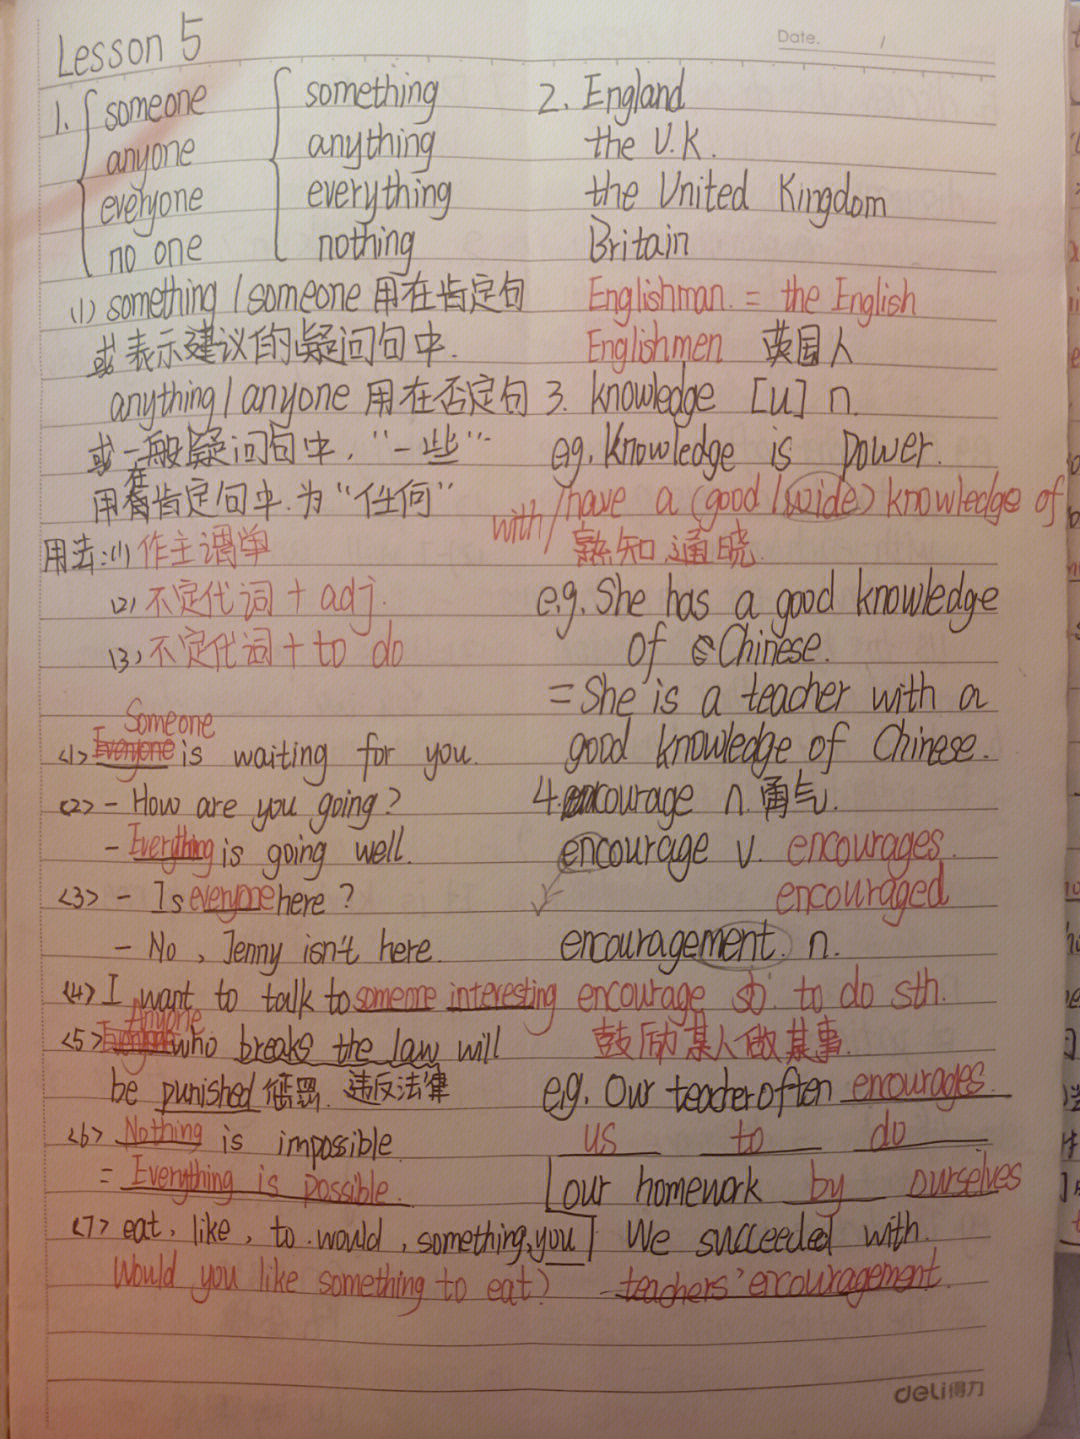 Lesson 5
Date. /
1. someone something
anyone anything
everyone everything
no one nothing
(1) something / someone 用在肯定句
或表示建议的疑问句中.
anything / anyone 用在否定句
或一般疑问句中. “一些”.
用在肯定句中.为“任何”
用法:(1) 作主谓单
(2) 不定代词 + adj.
(3) 不定代词 + to do
Someone
<1> Everyone is waiting for you.
<2> - How are you going?
- Everything is going well.
<3> - Is everyone here?
- No, Jenny isn't here.
<4> I want to talk to someone interesting
Anyone
<5> Everyone who breaks the law will
be punished 惩罚. 违反法律
<6> Nothing is impossible
= Everything is possible.
<7> eat, like, to. would, something, you
Would you like something to eat?
2. England
the U.K.
the United Kingdom
Britain
Englishman. = the English
Englishmen 英国人
3. knowledge [u] n.
eg. Knowledge is power.
with/have a (good / wide) knowledge of
熟知,通晓.
e.g. She has a good knowledge
of Chinese.
= She is a teacher with a
good knowledge of Chinese.
4. courage n. 勇气.
encourage v. encourages.
encouraged
encouragement. n.
encourage sb. to do sth.
鼓励某人做某事.
e.g. Our teacher often encourages.
us to do
our homework by ourselves
We succeeded with.
teachers' encouragement.
deli得力